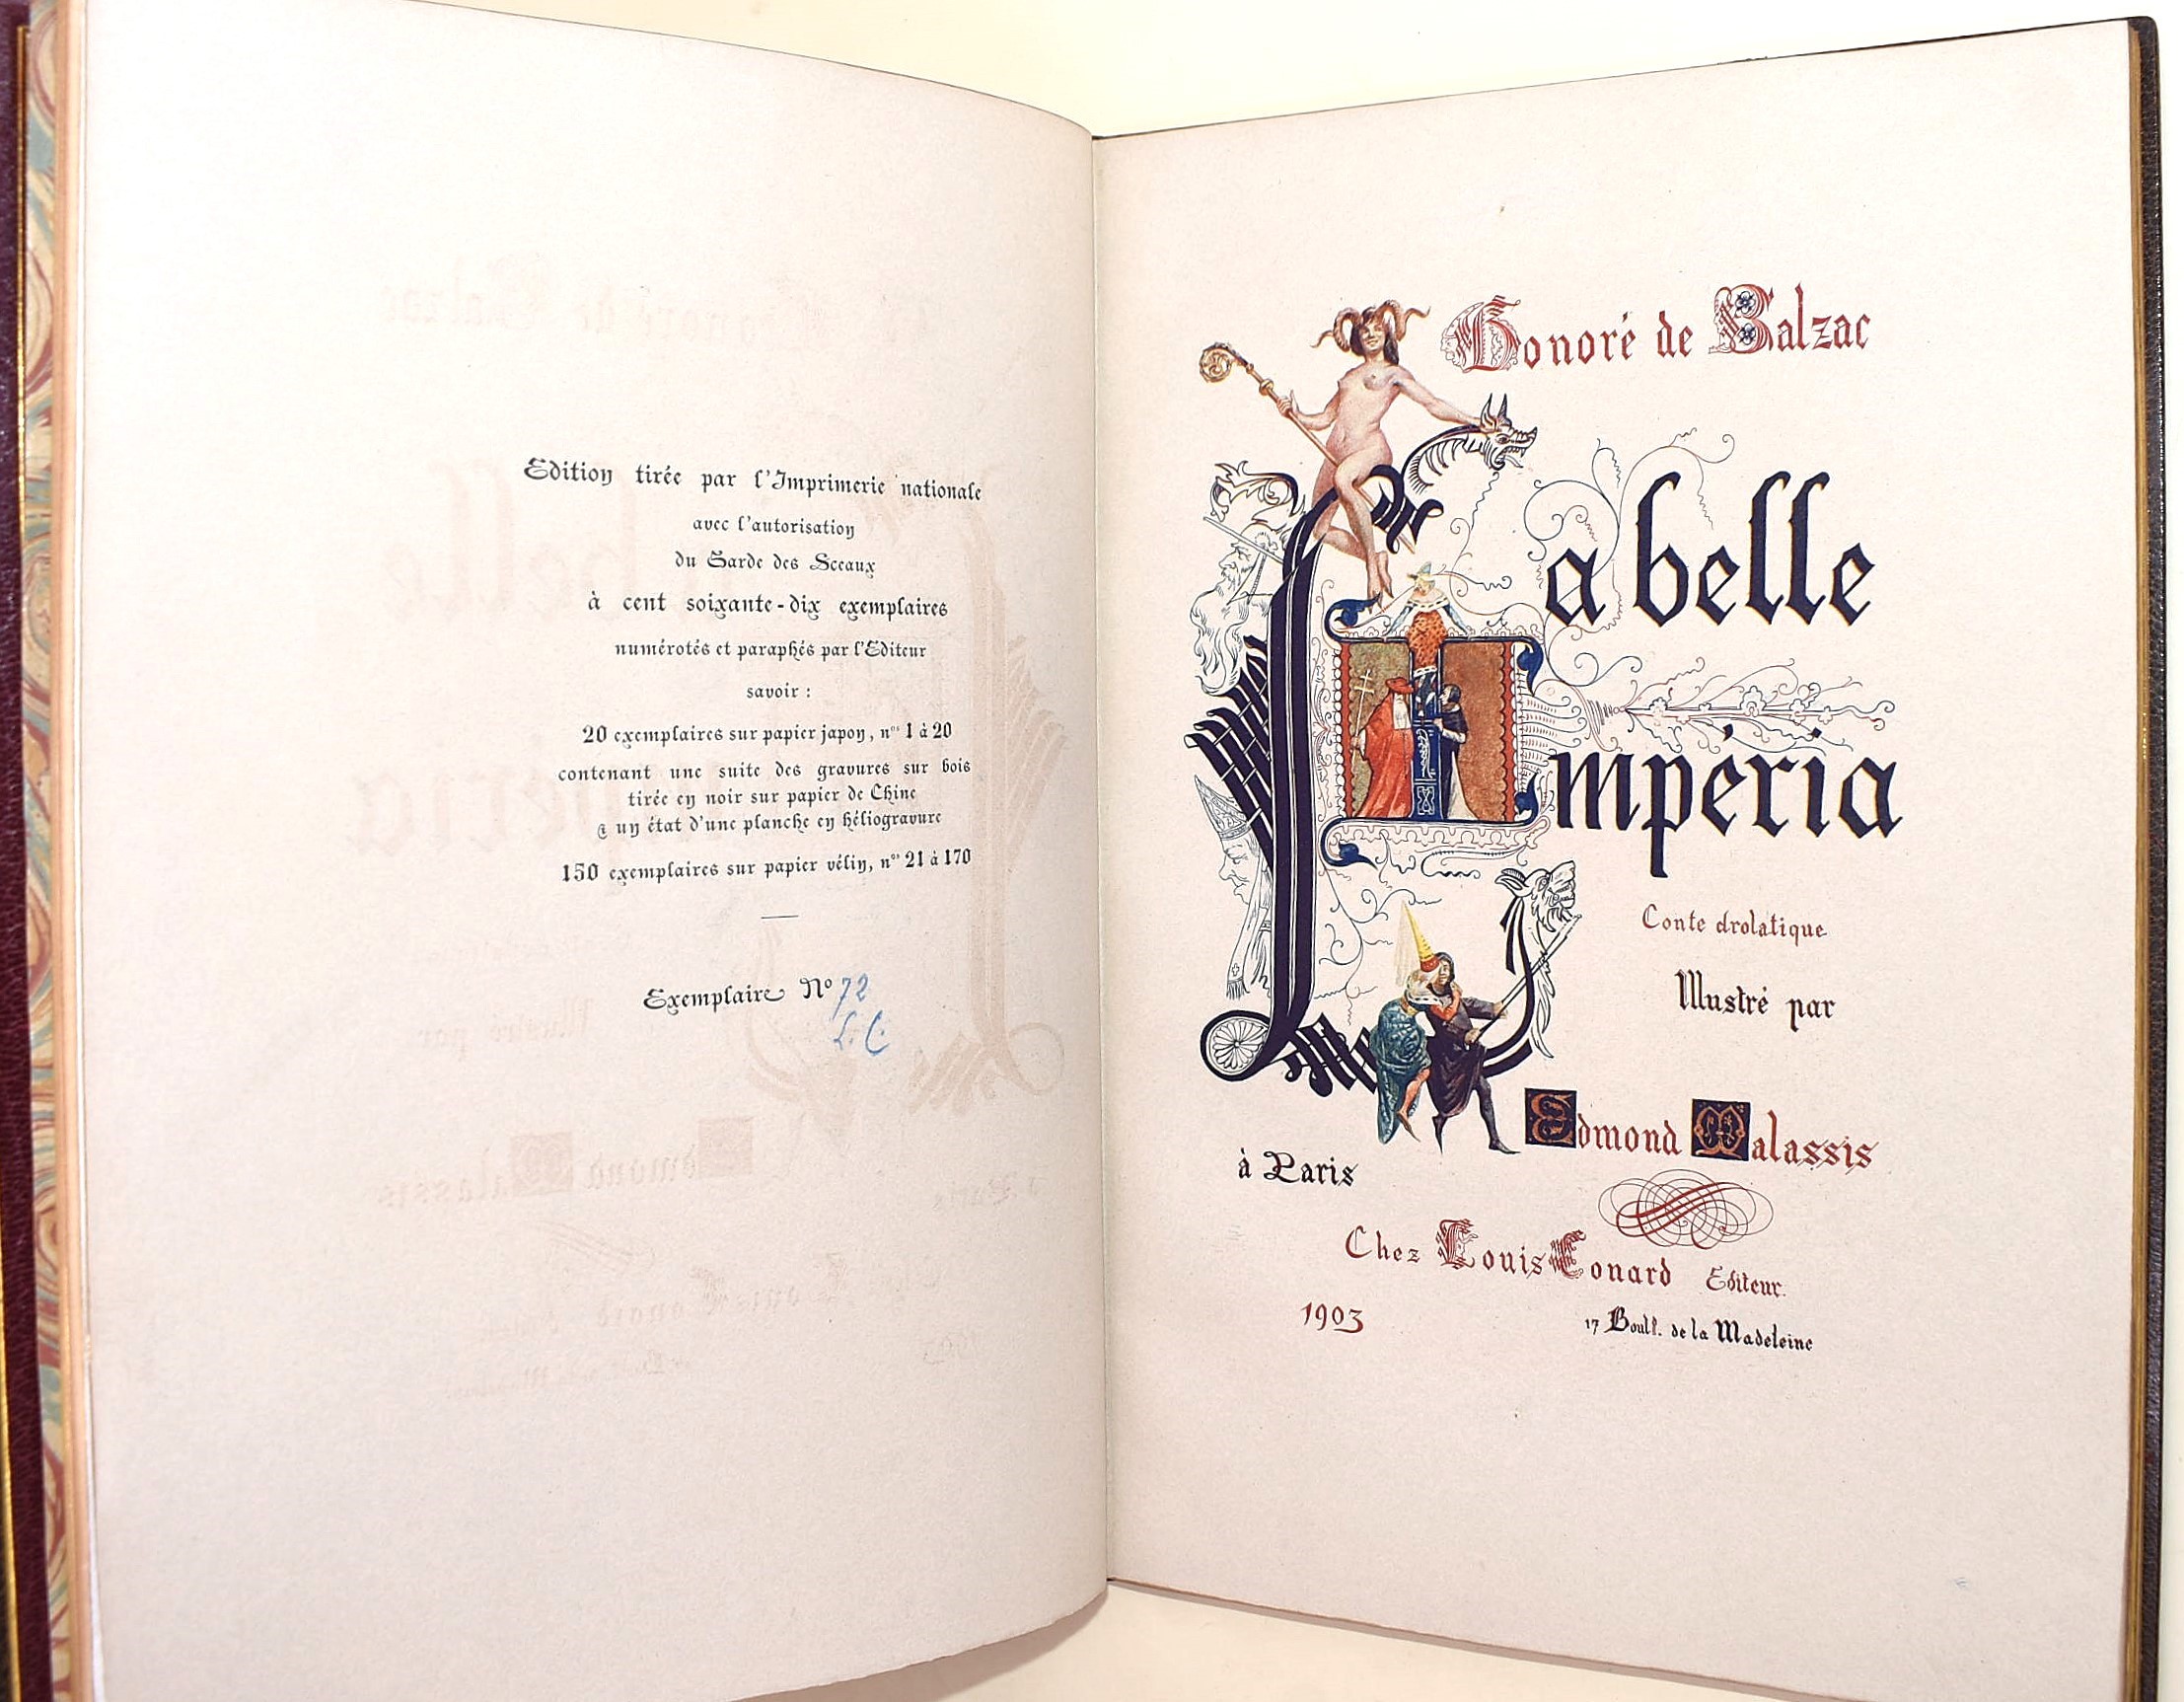 Edition tirée par l'Imprimerie nationale
avec l'autorisation
du Garde des Sceaux
à cent soixante-dix exemplaires
numérotés et paraphés par l'Editeur
savoir :
20 exemplaires sur papier japon, nos 1 à 20
contenant une suite des gravures sur bois
tirée en noir sur papier de Chine
& un état d'une planche en héliogravure
150 exemplaires sur papier vélin, nos 21 à 170
Exemplaire No 72
L. C
Honoré de Balzac
La belle
Impéria
Conte drolatique
Illustré par
Edmond Malassis
à Paris
Chez Louis Conard Editeur.
1903
17 Boult. de la Madeleine